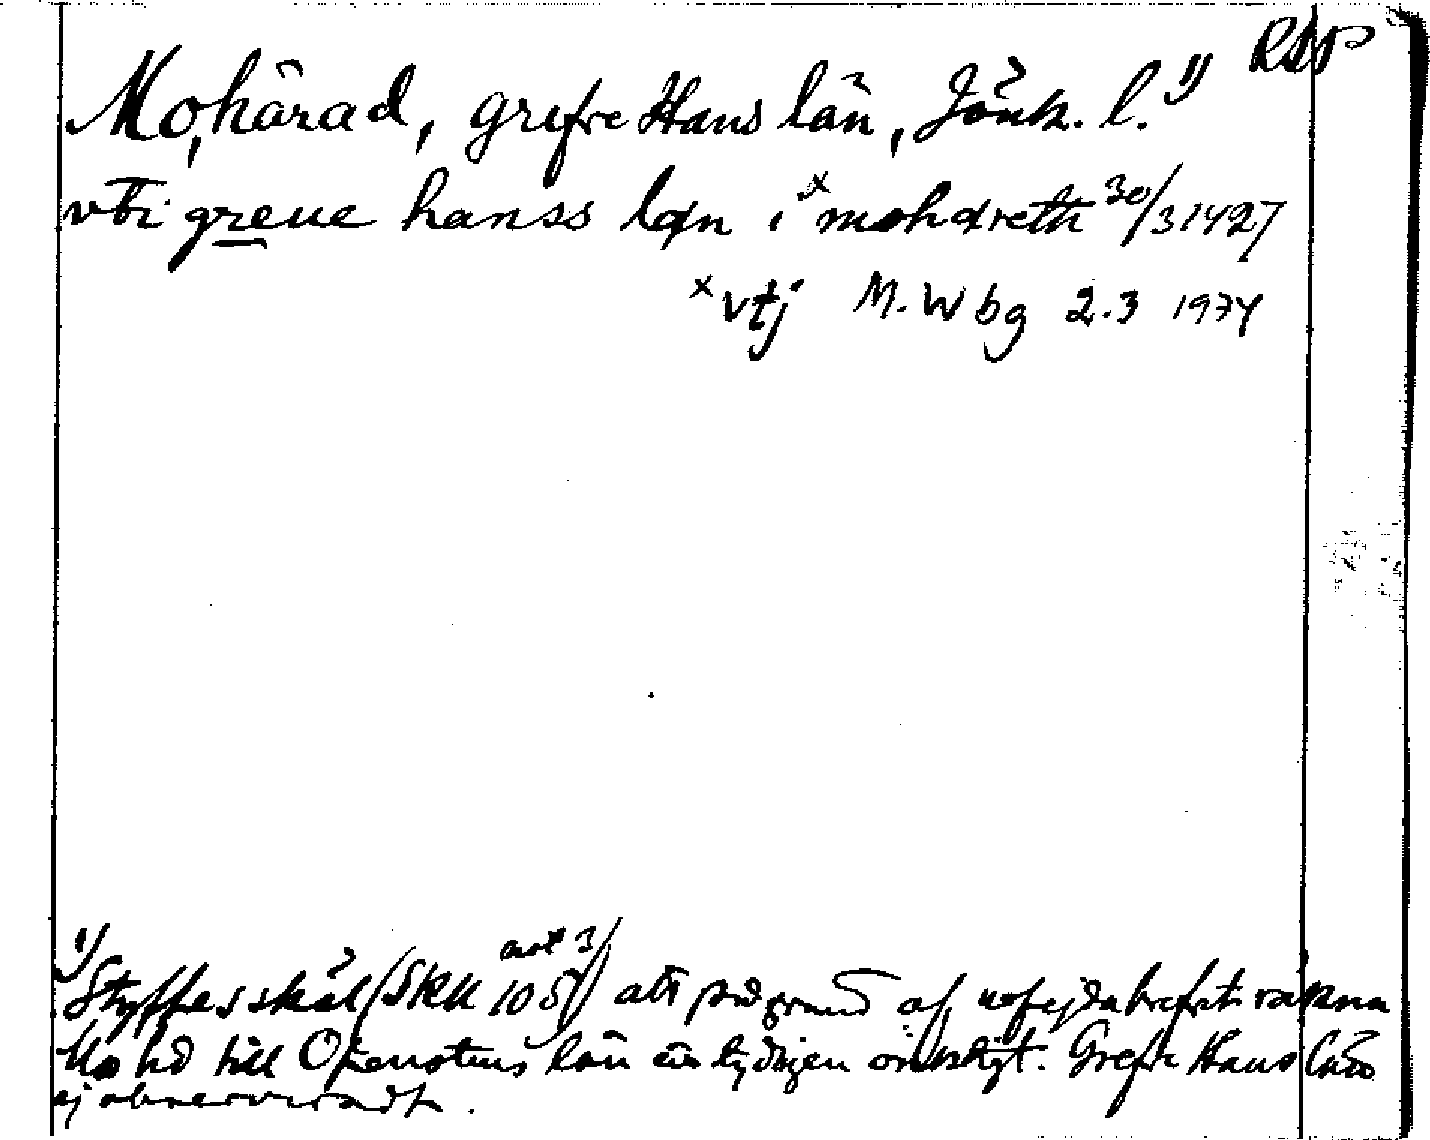 Mo, härad, grefve Hans län, Jönk. l. 1) RAP
vti greue hanss læn i x mohæreth 30/3 1427
x vtj M. Wbg 2.3 1974
1) Styffes skäl (SKU 105 not 3) att på grund af brefvet räkna
Mo hd till Openstens län är tydligen oriktigt. Grefve Hans län
ej observeradt.